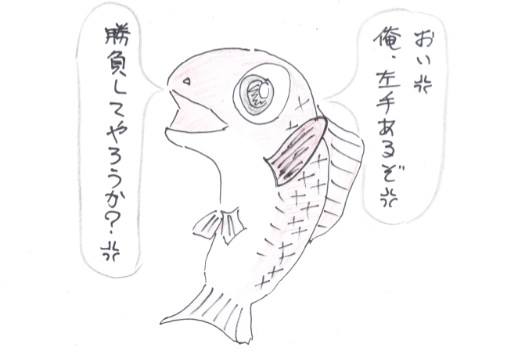 おい💢
俺、左手あるぞ💢
勝負してやろうか?💢